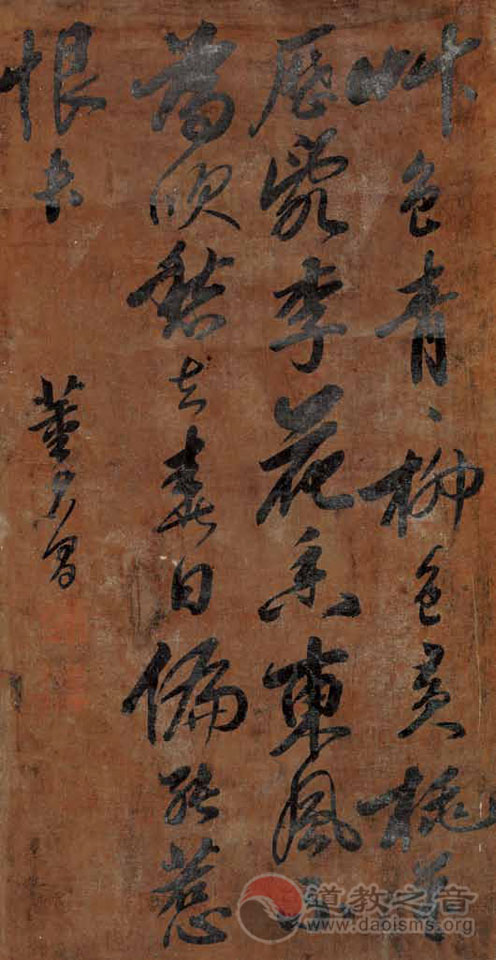 艸色青〻柳色黄桃花
歷亂李花香東風不
為吹愁去春日偏能惹
恨長
董其昌
道教之音
www.daoisms.org